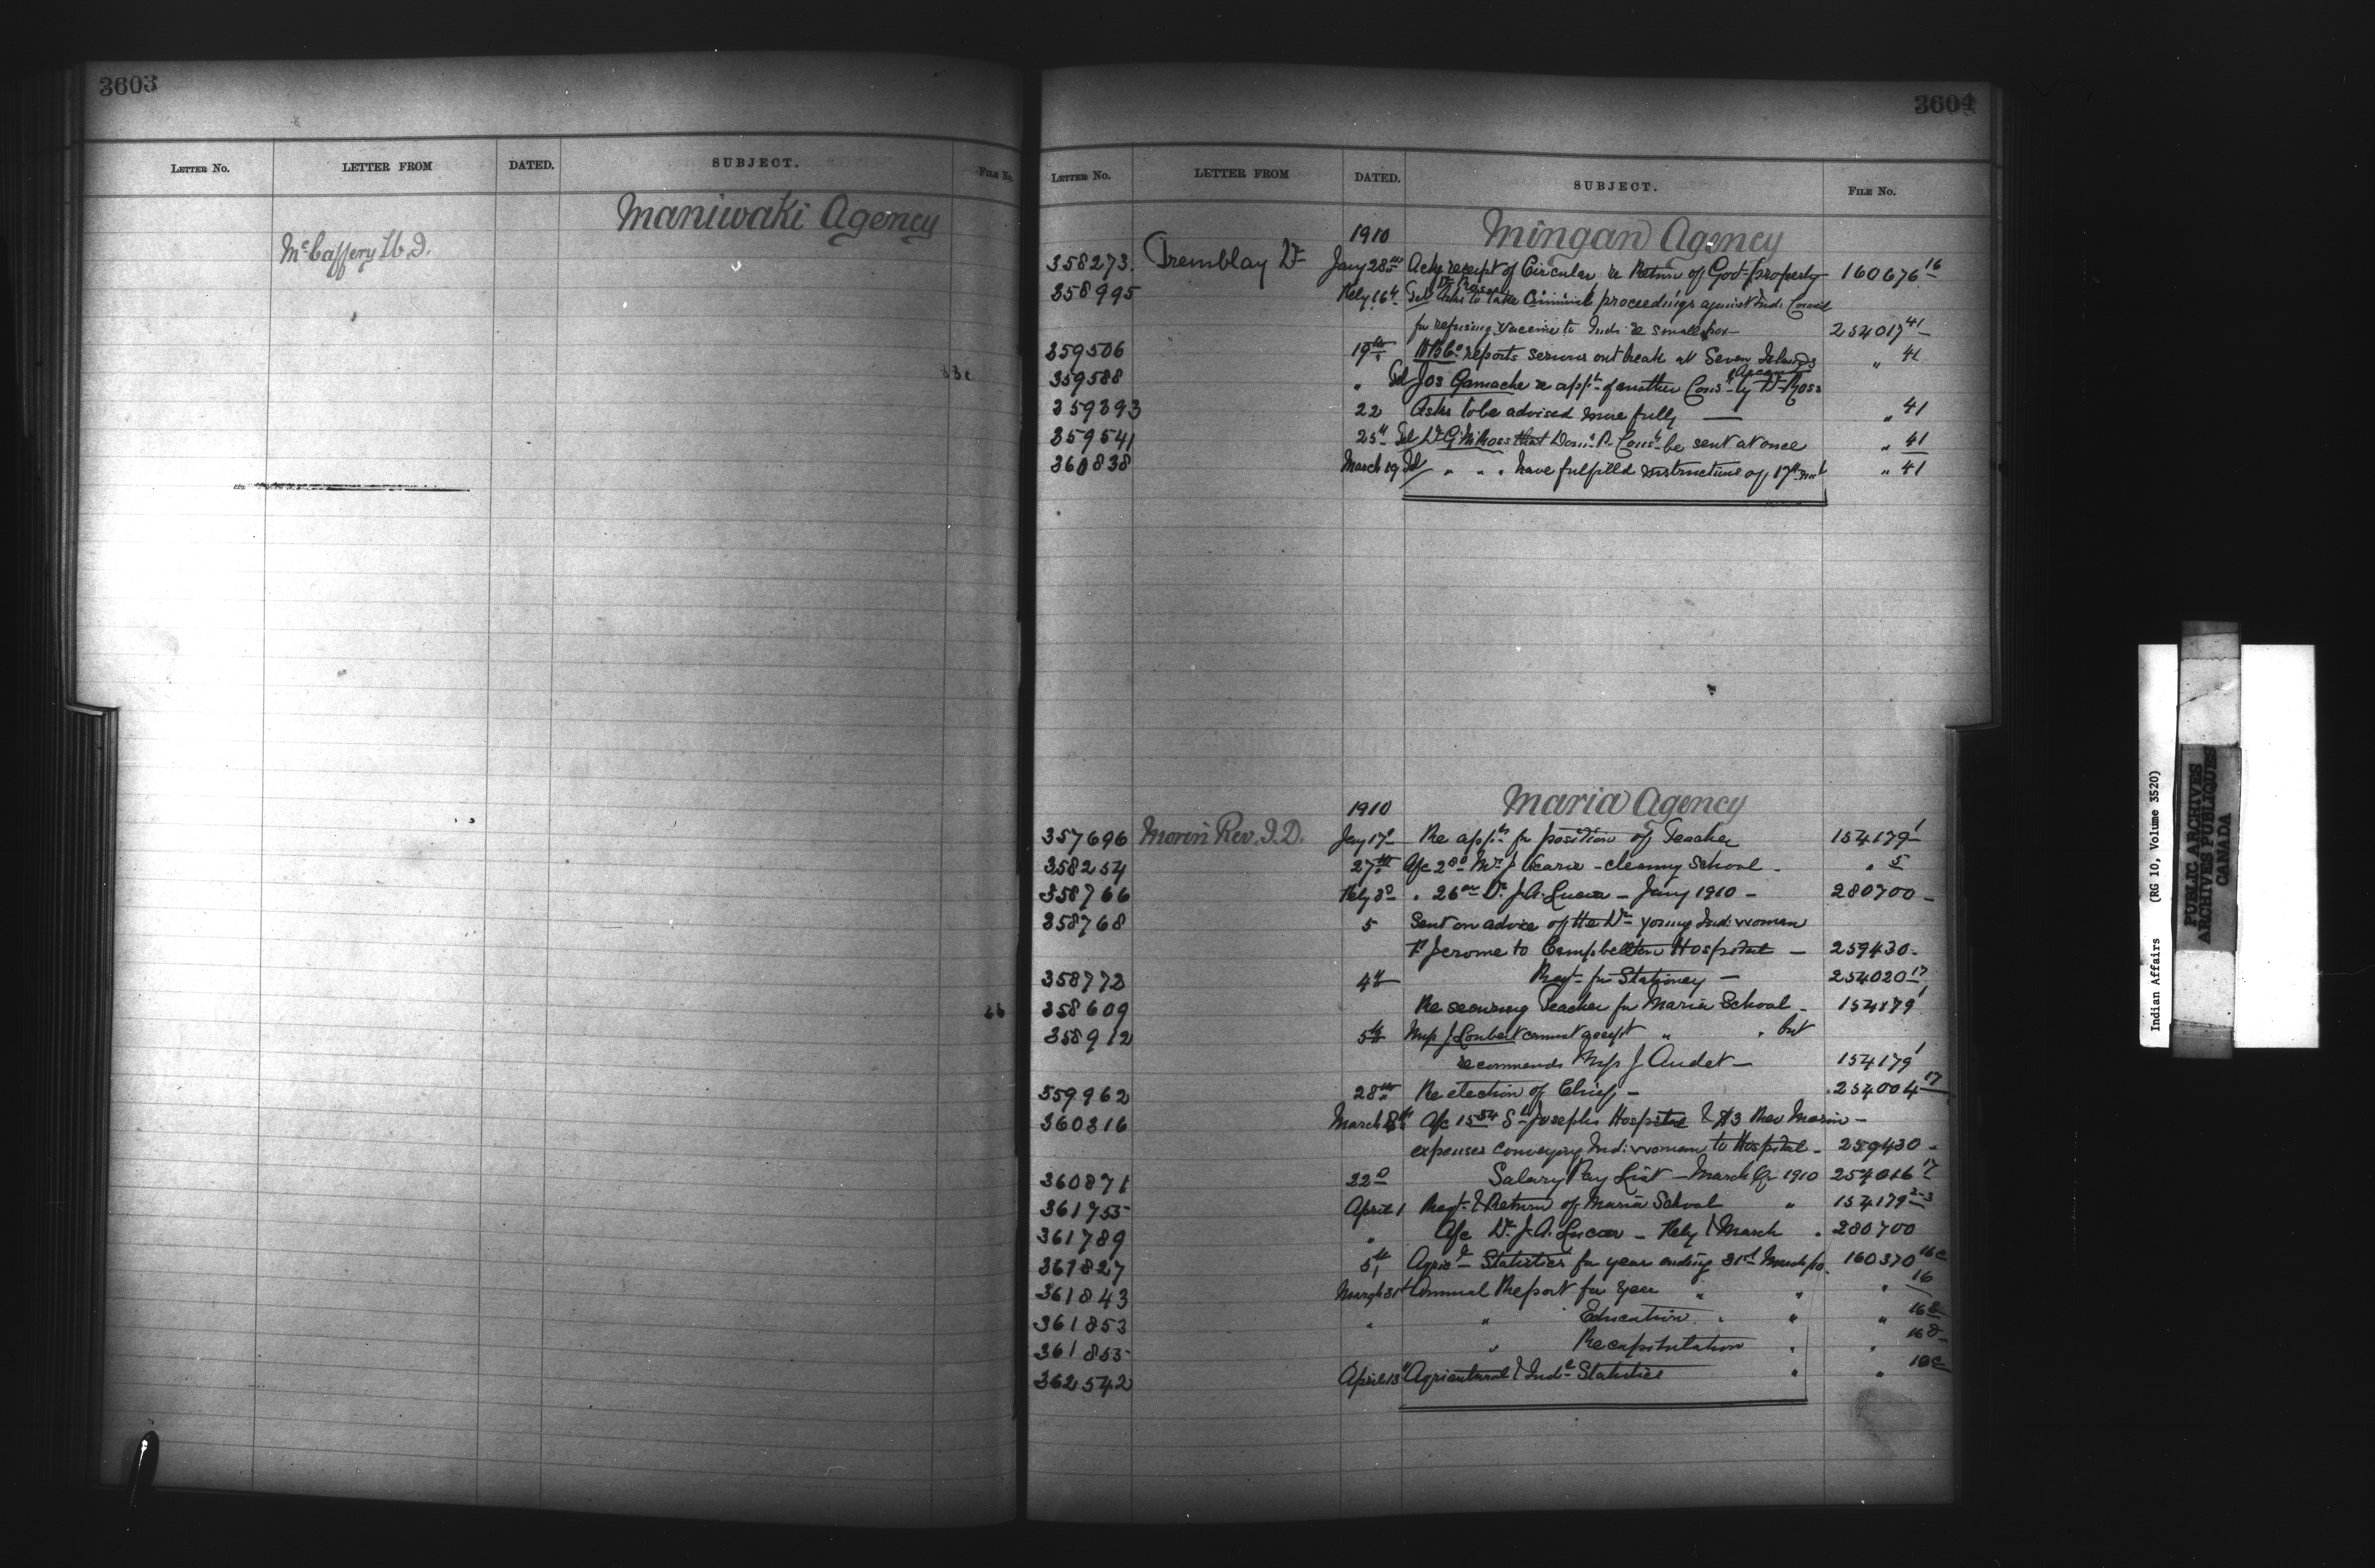 3603
LETTER NO. LETTER FROM DATED. SUBJECT. FILE No.
Maniwaki Agency
McCaffery
3604
LETTER NO. LETTER FROM DATED. SUBJECT. FILE No.
1910 Mingan Agency
358273. Tremblay Dr Jany 28th Ackg receipt of Circular re Return of Govt property 160676 16
358995 Feby 16th Tel Dr Ross asks to take Criminal proceedings against Indn Council
for refusing vaccine to Inds re smallpox 254017 41
359506 19th H B Co reports serious outbreak at Seven Islands " 41
359588 " Tel Jos Gamache re appt of another Cons by Dr Ross
359393 22 Asks to be advised more fully — " 41
359541 25th Tel Dr Ross that Domn P. Const be sent at once " 41
360838 March 19 Tel " " " have fulfilled instructions of 17th inst " 41
1910 Maria Agency
357696 Morin Rev. J.D. Jany 17th Re appts for position of Teacher 154179 1
358254 27th A/c 2 00 - cleaning School - " 5
358766 Feby 3d " 26 00 Dr J.A. Lucas - Jany 1910 - 280700 -
358768 5 Sent on advice of the Dr young Indn woman
F Jerome to Campbellton Hospital - 259430 -
358773 4th Reqt for Stationery - 254020 17
358609 Re securing Teacher for Maria School - 154179 1
358912 5th Miss J Loubert cannot accept " " but
recommends Miss J Audet - 154179 1
359962 28th Re election of Chief - 254004 17
360316 March 8th A/c 15 54 St Josephs Hospital & $3 Rev Morin -
expenses conveying Indn woman to Hospital - 259430 -
360871 22d Salary Pay List - March Qr 1910 254016 17
361755 April 1 Reqt & Return of Maria School " 154179 2-3
361789 " A/c Dr J.A. Lucas - Feby & March " 280700
361827 5th Agricl Statistics for year ending 31st March/10. 160370 16c
361843 March 31st Annual Report for year " " " 16
361853 " " Education " " " 16
361855 " Recapitulation " " 16
362542 April 13th Agricultural & Indl Statistics " " 16c
Indian Affairs (RG 10, Volume 3520)
PUBLIC ARCHIVES
ARCHIVES PUBLIQUES
CANADA